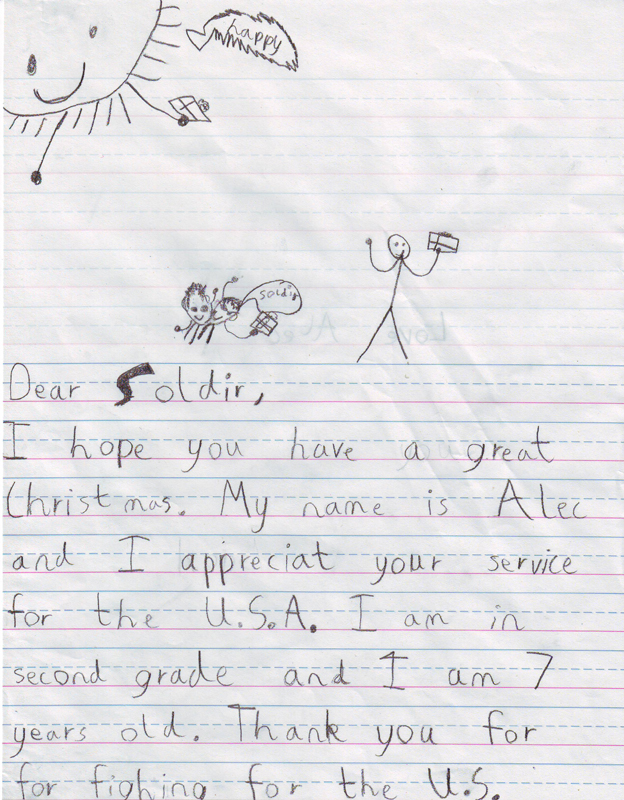 happy
soldir
Dear Soldir,
I hope you have a great
Christmas. My name is Alec
and I appreciat your service
for the U.S.A. I am in
second grade and I am 7
years old. Thank you for
for fighing for the U.S.
Love Alec